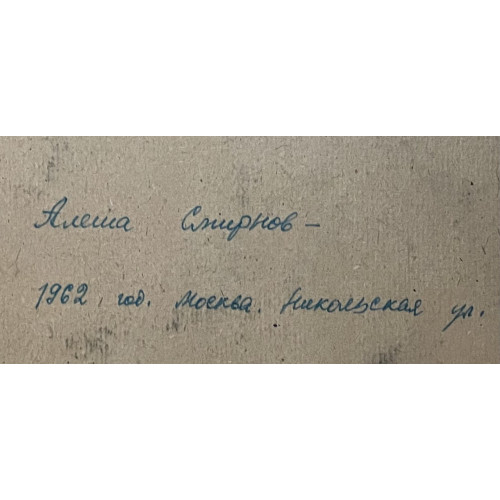 Алеша Смирнов –
1962, год. Москва. Никольская ул.